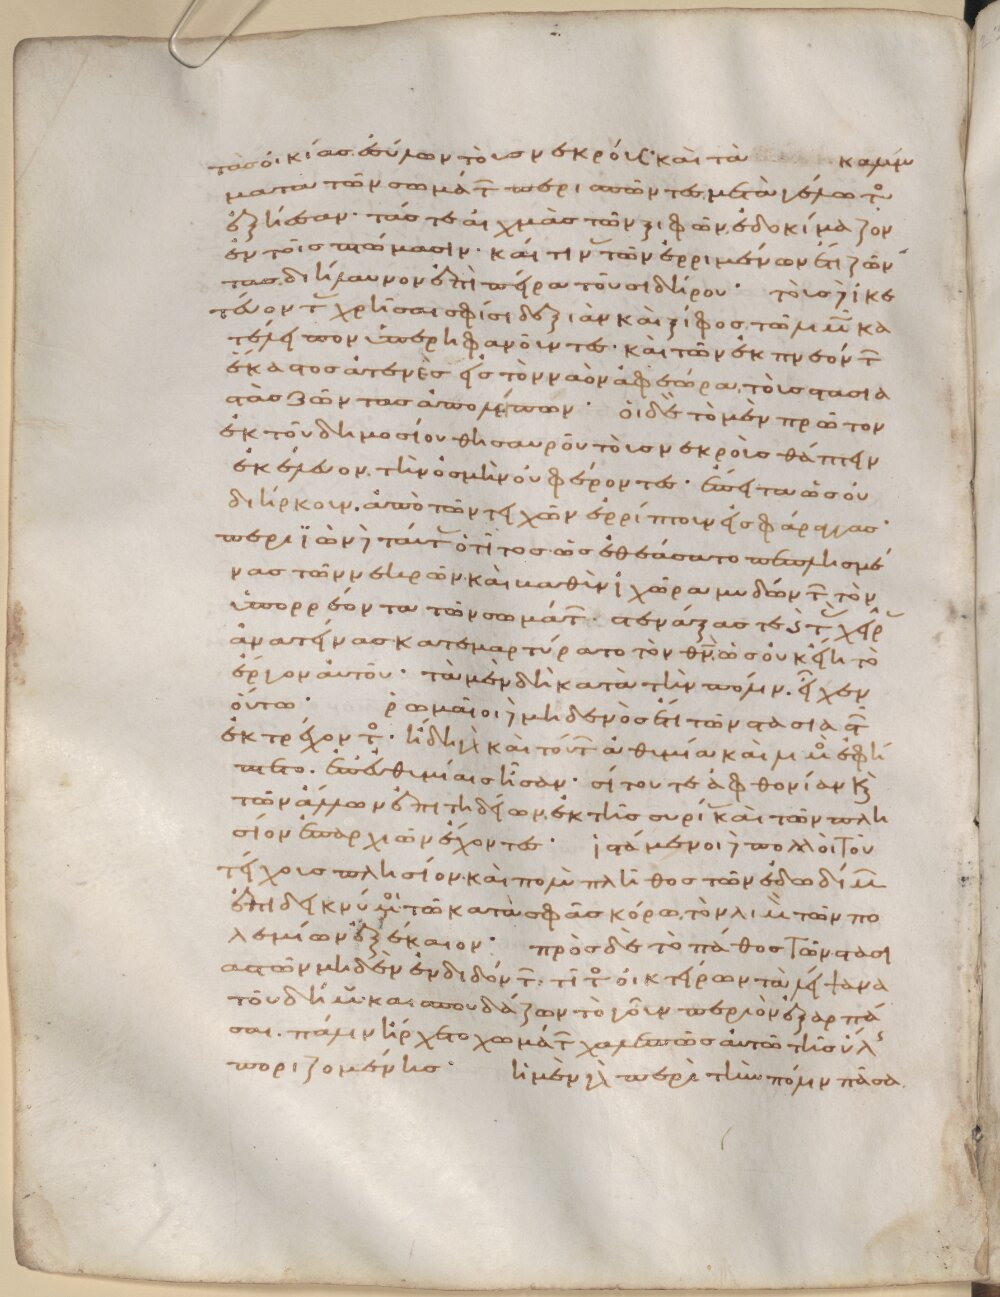 τὰς οἰκίας ἐσύλων τοὺς νεκρούς· καὶ τὰ καλύμ
ματα τῶν σωμάτ περισπῶντες μετὰ γέλωτο
ἐξήεσαν· τάς τε αἰχμὰς τῶν ξιφῶν ἐδοκίμαζον
ἐν τοῖς πτώμασιν· καί τιν τῶν ἐρριμένων ἔτι ζῶν
τας διήλαυνον ἐπὶ πείρα τοῦ σιδήρου· τοὺς δ ἱκε
τεύοντ χρῆσαι σφίσι δεξιὰν καὶ ξίφος τῶ λιμ κα
τέλειπον ὑπερηφανοῦντες· καὶ τῶν ἐκπνεόντ
ἕκαστος ἀτενὲς εἰς τὸν ναὸν ἀφεώρα, τοὺς στασια
στὰς ζῶντας ἀπολειπων· οἱ δὲ τὸ μὲν πρῶτον
ἐκ τοῦ δημοσίου θησαυροῦ τοὺς νεκροὺς θάπτειν
ἐκέλευον, τὴν ὀσμὴν οὐ φέροντες· ἔπειτα ὡς οὐ
διήρκουν, ἀπὸ τῶν τειχῶν ἐρρίπτουν εἰς φάραγγας·
περιϊὼν δ ταύτ ὁ τίτος ὡς ἐθεάσατο πεπλησμέ
νας τῶν νεκρῶν καὶ βαθὺν ἰχῶρα μυδώντ τὸν
ὑπορρέοντα τῶν σωμάτ· στενάξας τε καὶ τ χεῖρ
ἀνατείνας κατεμαρτύρατο τὸν θν ὡς οὐκ εἴη τὸ
ἔργον αὐτοῦ· τὰ μὲν δὴ κατὰ τὴν πόλιν, εἶχεν
οὕτω· ῥωμαῖοι δ μηδενὸς ἔτι τῶν στασιαστ
ἐκτρέχοντο· ἤδη γὰρ καὶ τούτ ἀθυμία καὶ λιμὸ ἐφή
πτετο· ἐπ εὐθυμίαις ἦσαν· σίτου τε ἀφθονίαν καὶ
τῶν ἄλλων ἐπιτηδείων, ἐκ τῆς συρί καὶ τῶν πλη
σίον ἐπαρχιῶν ἔχοντες· ἱστάμενοι δ πολλοὶ τοῦ
τείχους πλησίον· καὶ πολὺ πλῆθος τῶν ἐδωδίμ
ἐπιδεικνύμοι τῶ κατὰ σφᾶς κόρω, τὸν λιμ τῶν πο
λεμίων ἐξέκαιον· πρὸς δὲ τὸ πάθος τῶν στασι
αστῶν μηδὲν ἐνδιδόντ· τίτο οἰκτείρων τὰ λείψανα
τοῦ δήμ· καὶ σπουδάζων τὸ γοῦν περιὸν ἐξαρπά
σαι. πάλιν ἤρχετο χωμάτ χαλεπῶς αὐτῶ τῆς ὕλ
ποριζομένης· ἡ μὲν γὰρ περὶ τὴν πόλιν πᾶσα